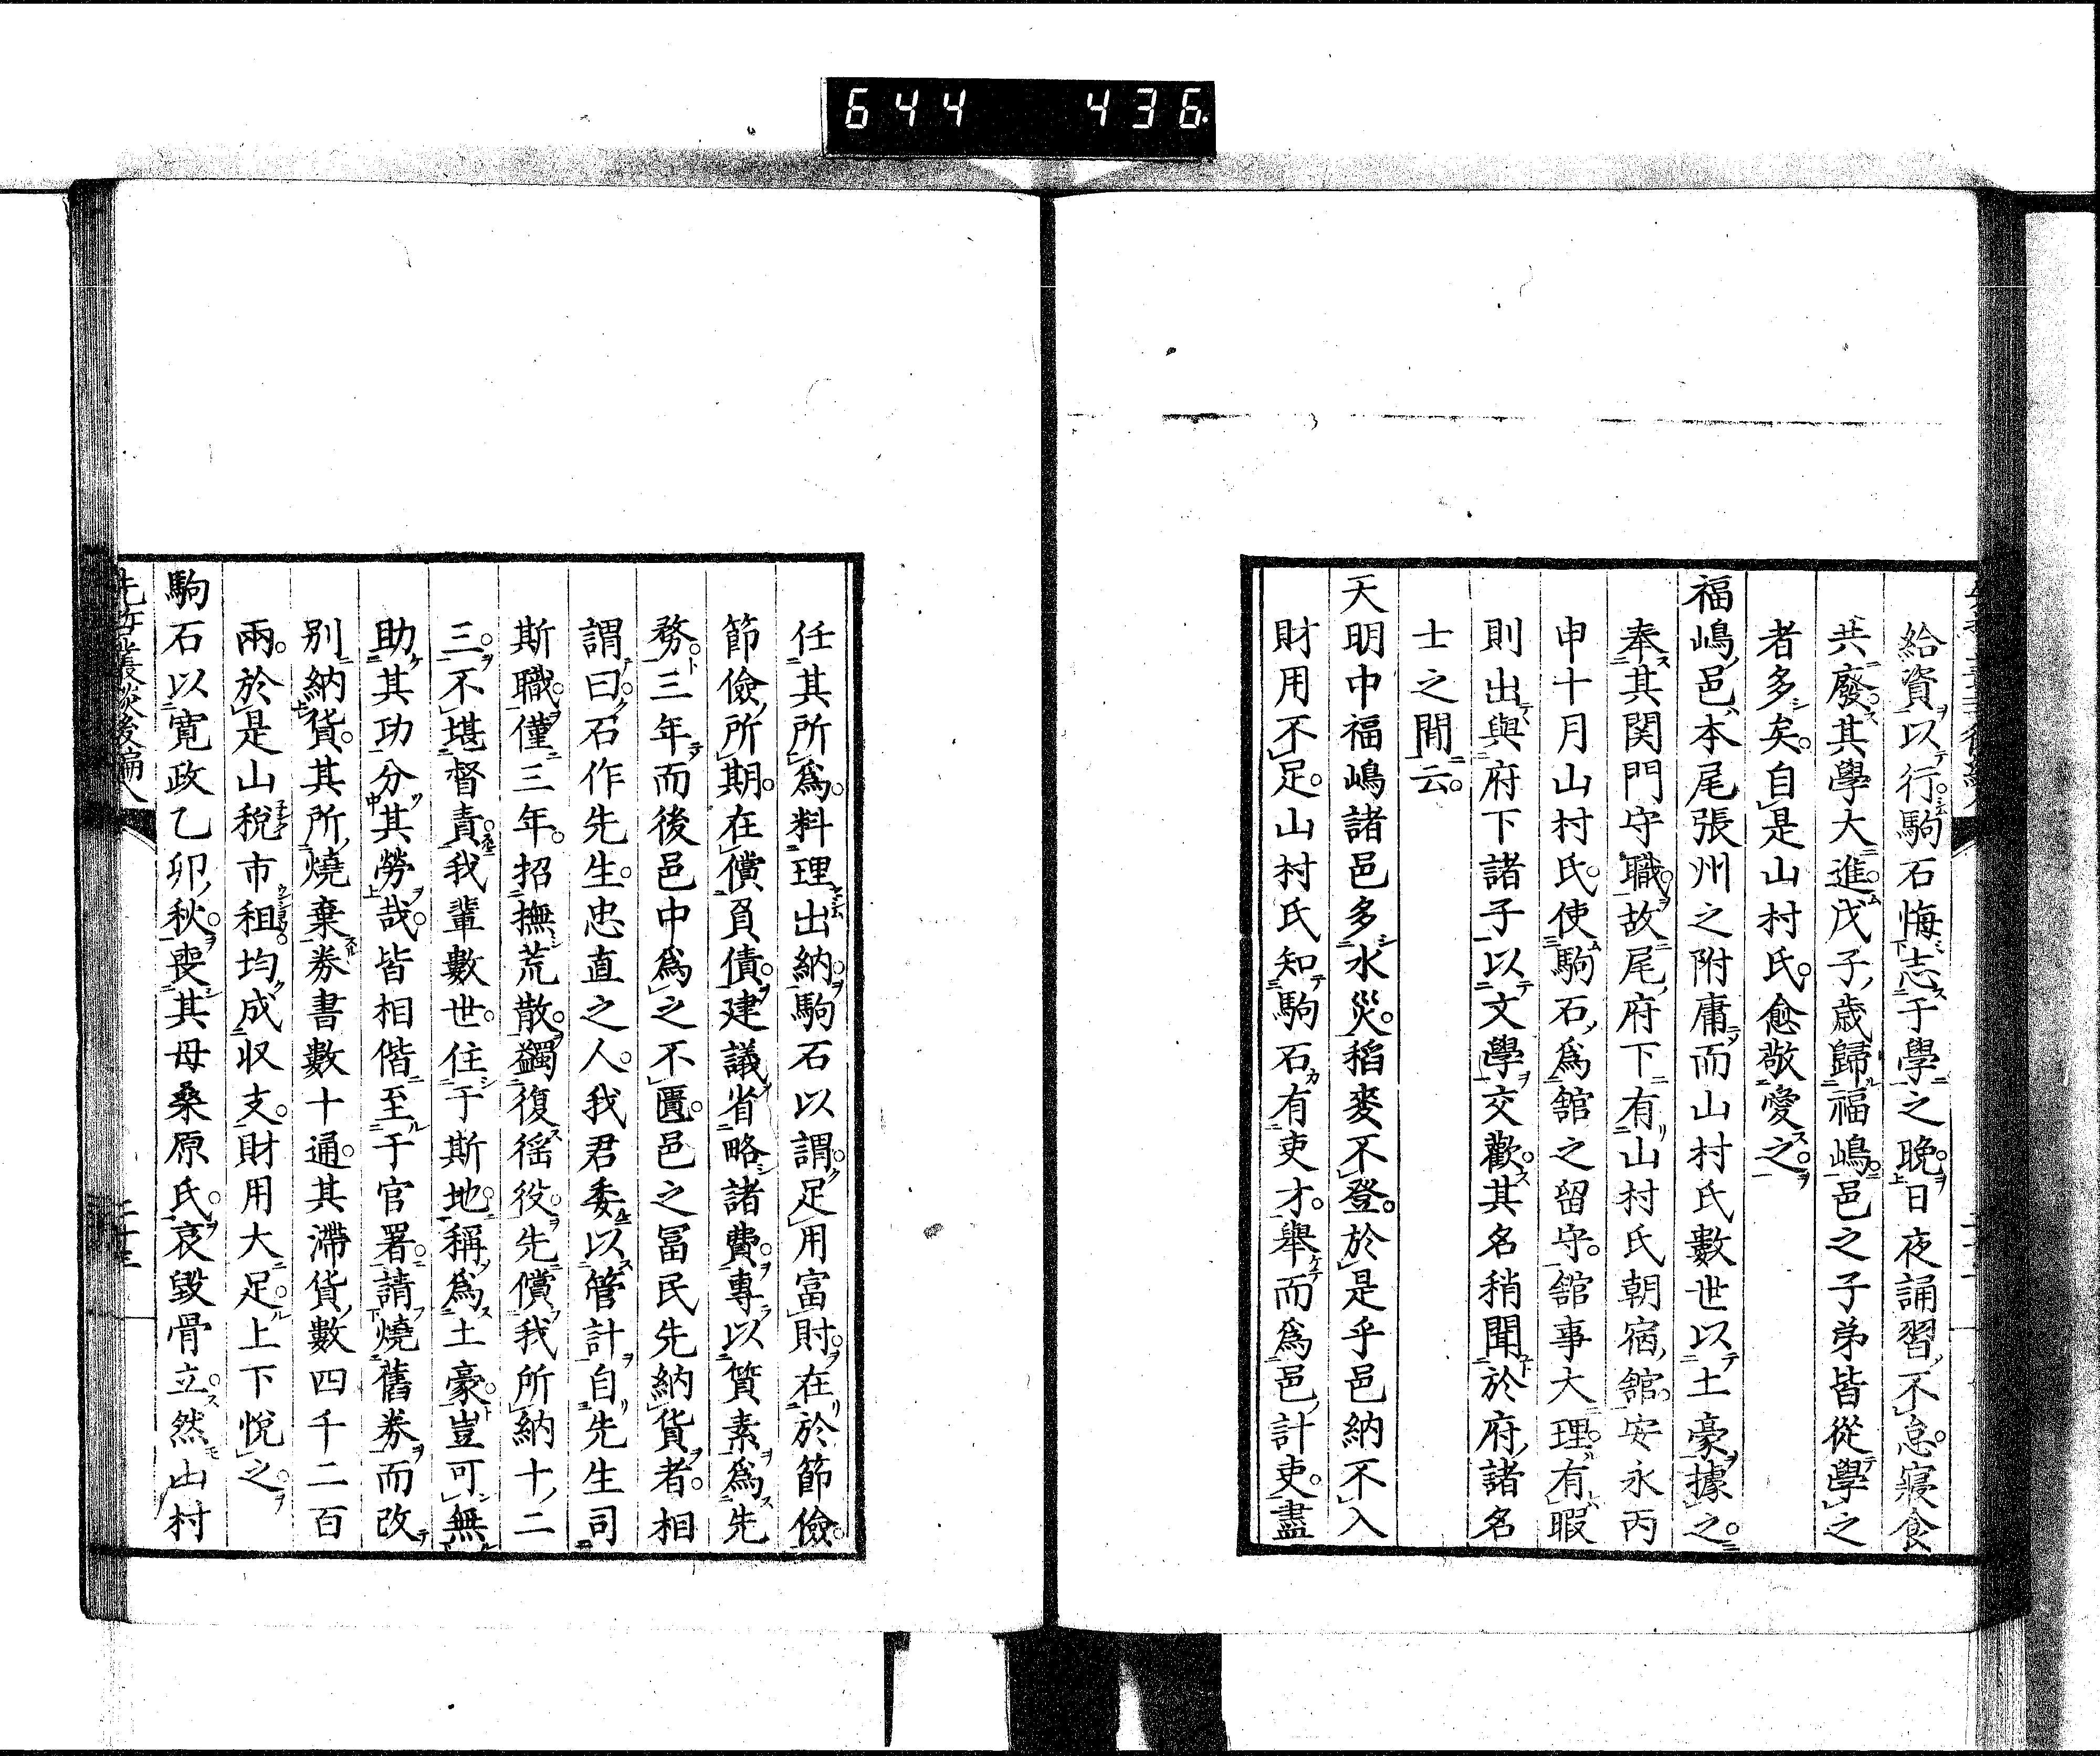 644 436.
給資以行。駒石悔志于學之晩。日夜誦習、不怠。寢食
共廢。其學大進。戊子、歳歸福嶋。邑之子弟皆從學之
者多矣。自是山村氏愈敬愛之。
福嶋、邑、本尾張州之附庸而山村氏數世以土豪據之。
奉其関門守職。故尾府下有山村氏朝宿、舘。安永丙
申十月山村氏。使駒石、爲舘之留守。舘事大理。有暇
則出與府下諸子以文學交歡。其名稍聞於府、諸名
士之間云。
天明中福嶋諸邑多水災。稻麥不登。於是乎邑納不入
財用不足。山村氏知駒石有吏才。舉而爲邑、計吏。盡
任其所爲。料理出納。駒石以謂。足用富財。在於節儉。
節儉、所期。在償負債。建議省略諸費。專以質素爲先
務。三年而後邑中爲之不匱。邑之冨民先納貨者。相
謂曰。石作先生。忠直之人。我君委以管計自先生司
斯職。僅三年。招撫荒散。蠲復徭役。先償我所納十、二
三。不堪督責。我輩數世。住于斯地。稱爲土豪。豈可無
助其功分其勞哉。皆相偕至于官署。請燒舊券而改
別納貨。其所、燒棄券書數十通。其滯貨、數四千二百
兩。於是山税市租。均成収支。財用大足。上下悅之。
駒石以寛政乙卯、秋。喪其母桑原氏。哀毀骨立。然山村
先哲叢談後編八